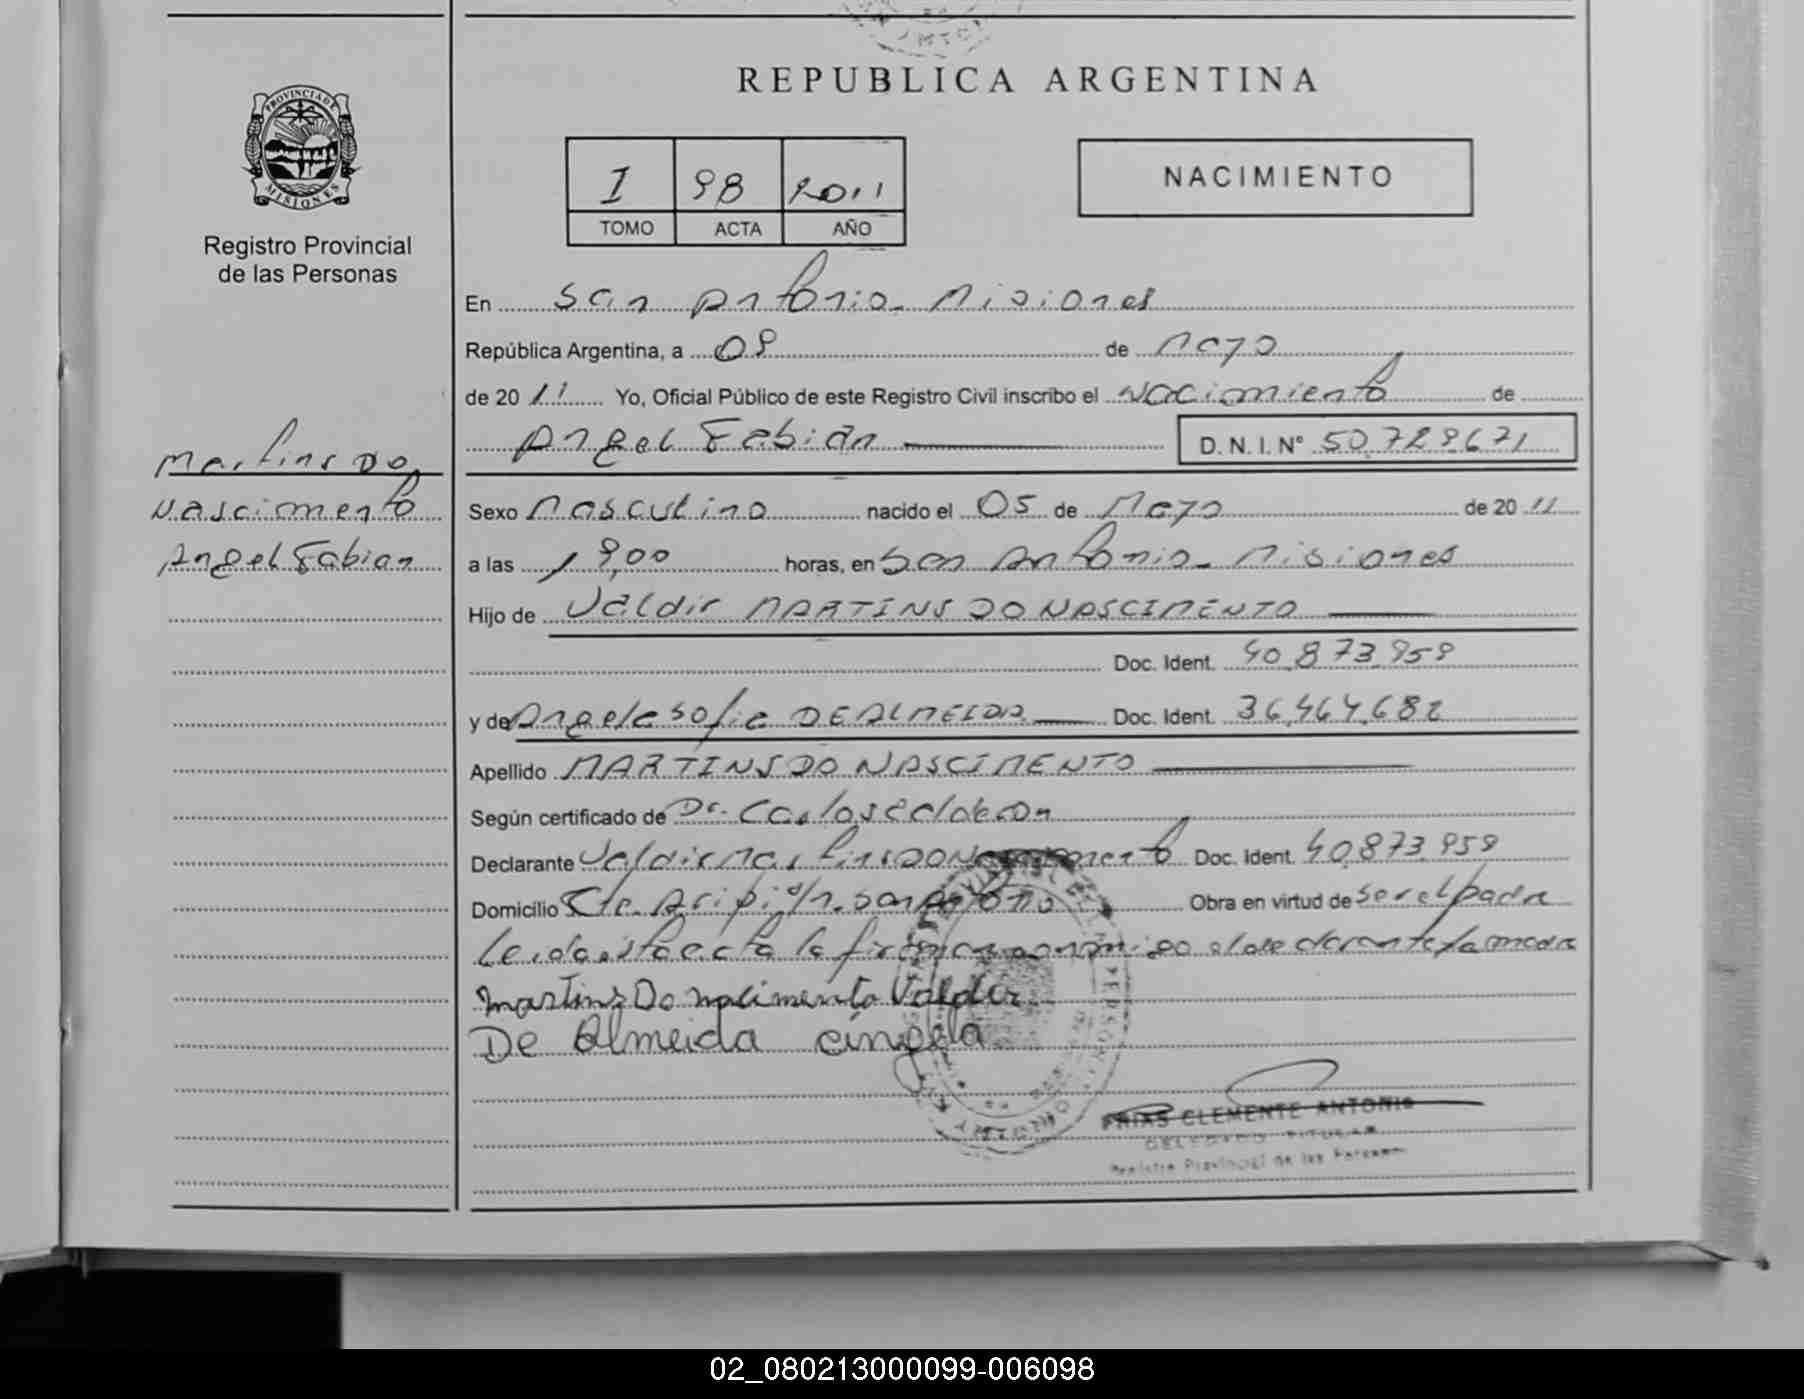 REPUBLICA ARGENTINA
PROVINCIA DE
MISIONES
Registro Provincial
de las Personas
I 98 2011
TOMO ACTA AÑO
NACIMIENTO
En San Antonio - Misiones
República Argentina, a 09 de Mayo
de 2011 Yo, Oficial Público de este Registro Civil inscribo el Nacimiento de
Angel Fabián D.N.I.Nº 50.729671
Martins Do
Nascimento
Angel Fabian
Sexo Masculino nacido el 05 de Mayo de 2011
a las 19,00 horas, en San Antonio - Misiones
Hijo de Valdir MARTINS DO NASCIMENTO
Doc. Ident. 40.873.959
y de Angela Sofia DE ALMEIDA Doc. Ident. 36.464.682
Apellido MARTINS DO NASCIMENTO
Según certificado de Dr. Carlos
Declarante Valdir Martins DO Doc. Ident. 40.873.959
Domicilio s/n. San Antonio Obra en virtud de ser el padre
Leida esta acta la firman conmigo el declarante la madre
Martins Do Nascimento Valdir
De Almeida Angela
FRIAS CLEMENTE ANTONIO
DELEGADO TITULAR
Registro Provincial de las Personas
02_080213000099-006098